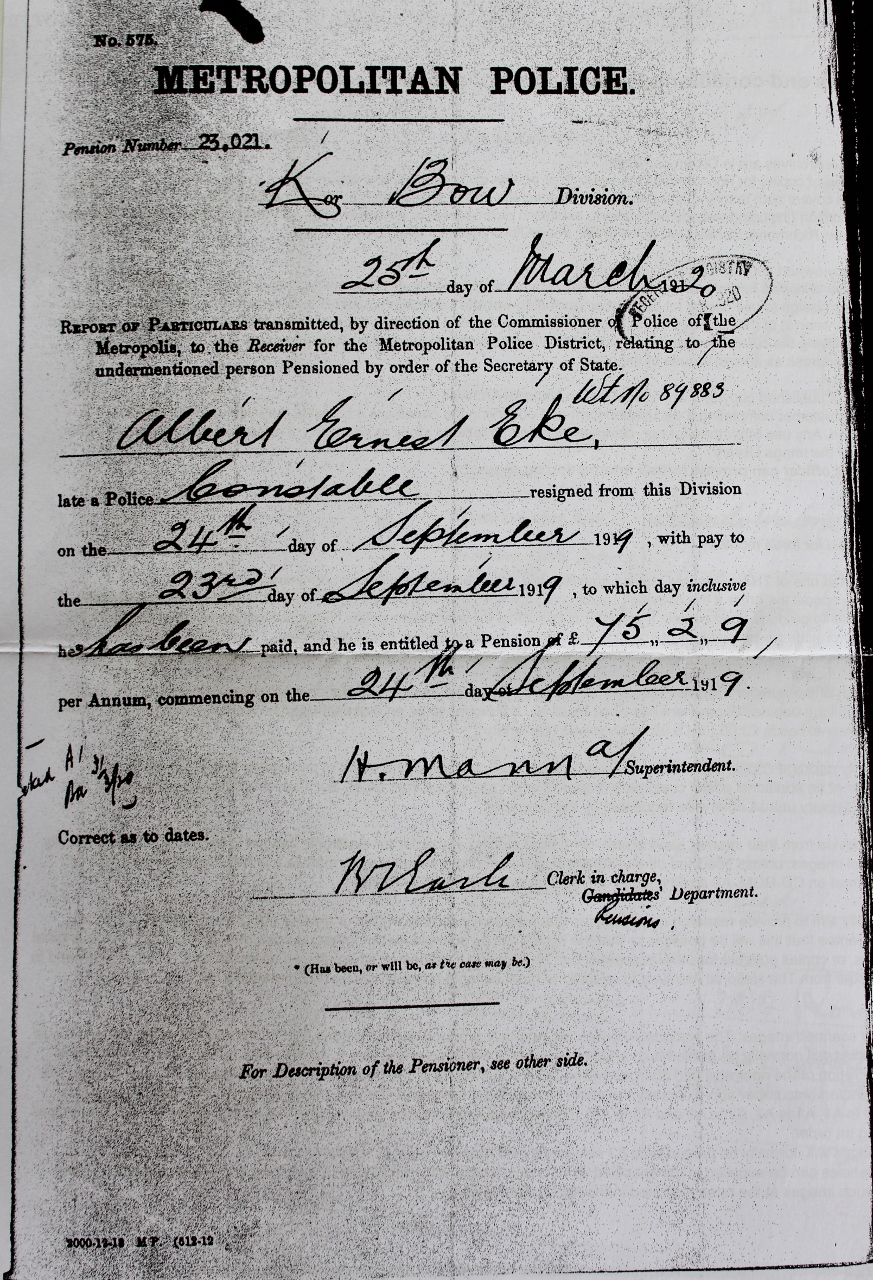 No. 575.
METROPOLITAN POLICE.
Pension Number 23,021.
K or Bow Division.
25th day of March 1920
REPORT OF PARTICULARS transmitted, by direction of the Commissioner of Police of the
Metropolis, to the Receiver for the Metropolitan Police District, relating to the
undermentioned person Pensioned by order of the Secretary of State.
Wt No 89883
Albert Ernest Eke,
late a Police Constable resigned from this Division
on the 24th day of September 1919, with pay to
the 23rd day of September 1919, to which day inclusive
he* has been paid, and he is entitled to a Pension of £ 75 „ 2 „ 9
per Annum, commencing on the 24th day of September 1919.
H. Mann Superintendent.
Correct as to dates.
Clerk in charge,
Candidates' Department.
Pensions.
* (Has been, or will be, as the case may be.)
For Description of the Pensioner, see other side.
2000-12-18 M.P. (612-12